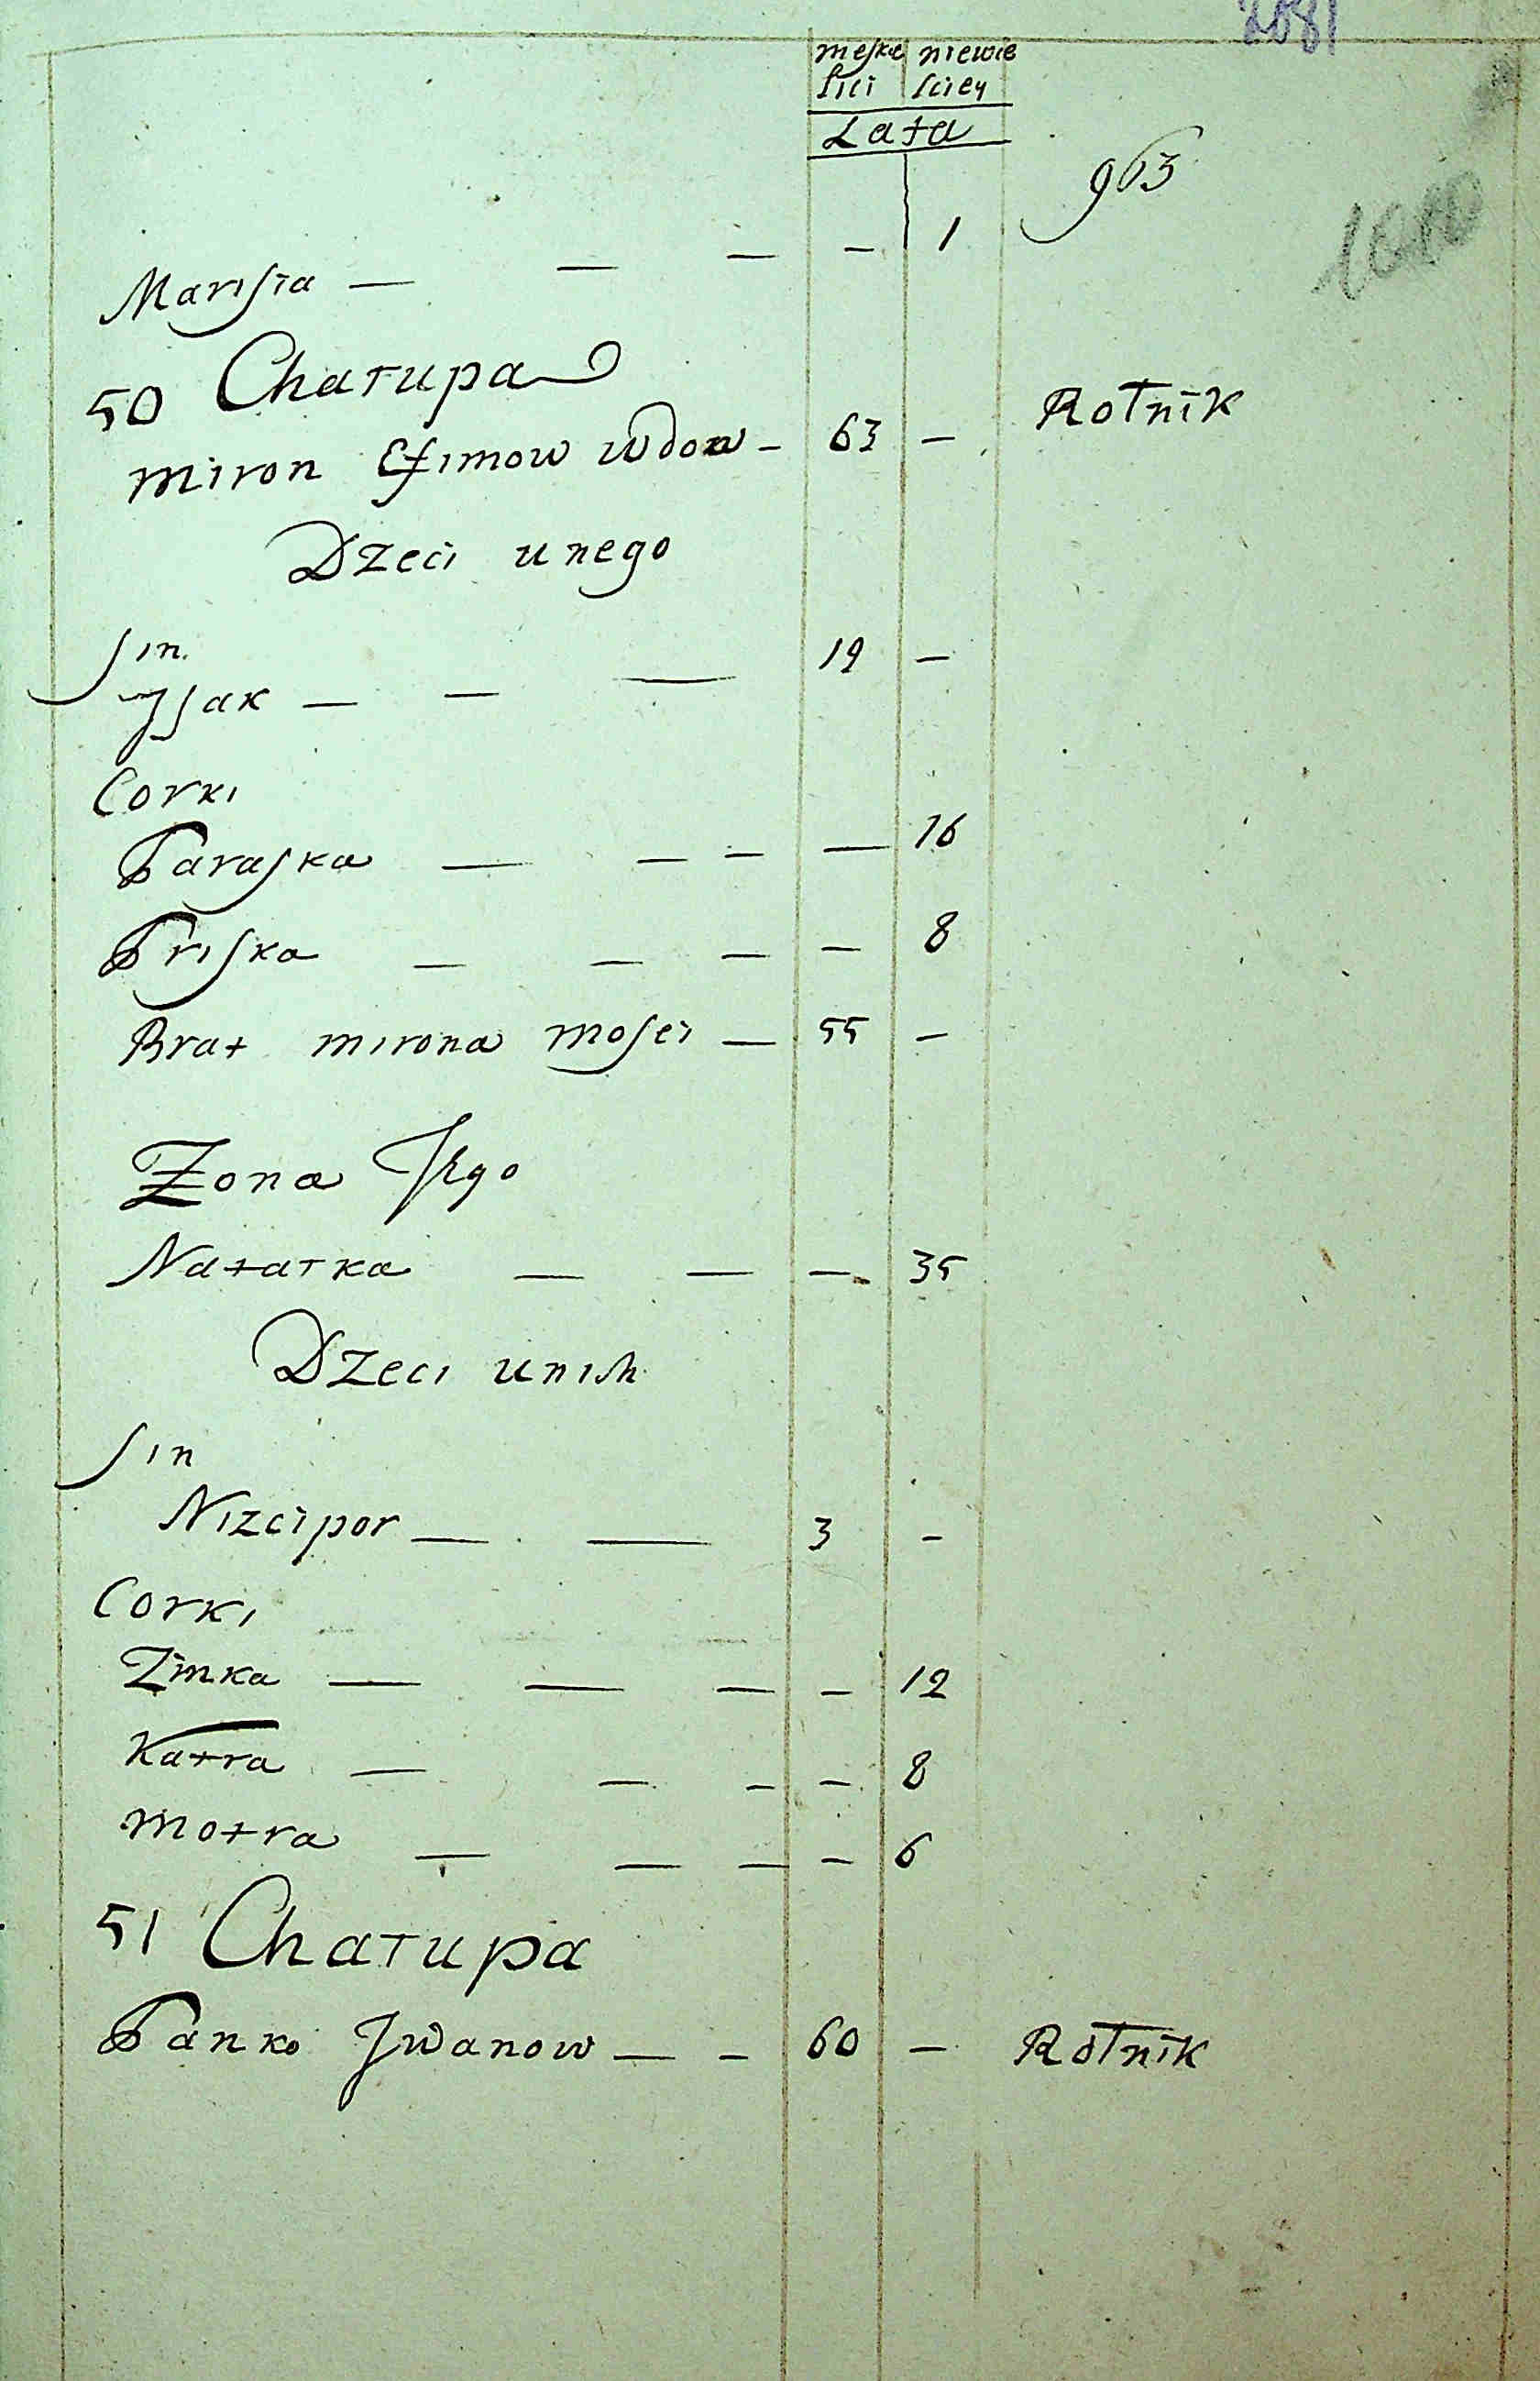 2081
meskie niewie
sici sciey
Lata
963
Marisia — — — — 1
1010
50 Chatupa
Miron Efimow Wdow - 63 — Rotnik
Dzeci unego
sin.
Jsak — — — 19 —
Corki
Paraska — — — — 16
Priska — — — — 8
Brat mirona mosei — 55 —
Zona Jego
Natatka — — — 35
Dzeci unih
sin
Nizcipor — — 3 -
Corki
Zinka — — — — 12
Katra — — — — 8
Motra — — — — 6
51 Chatupa
Panko Jwanow — - 60 — Rotnik